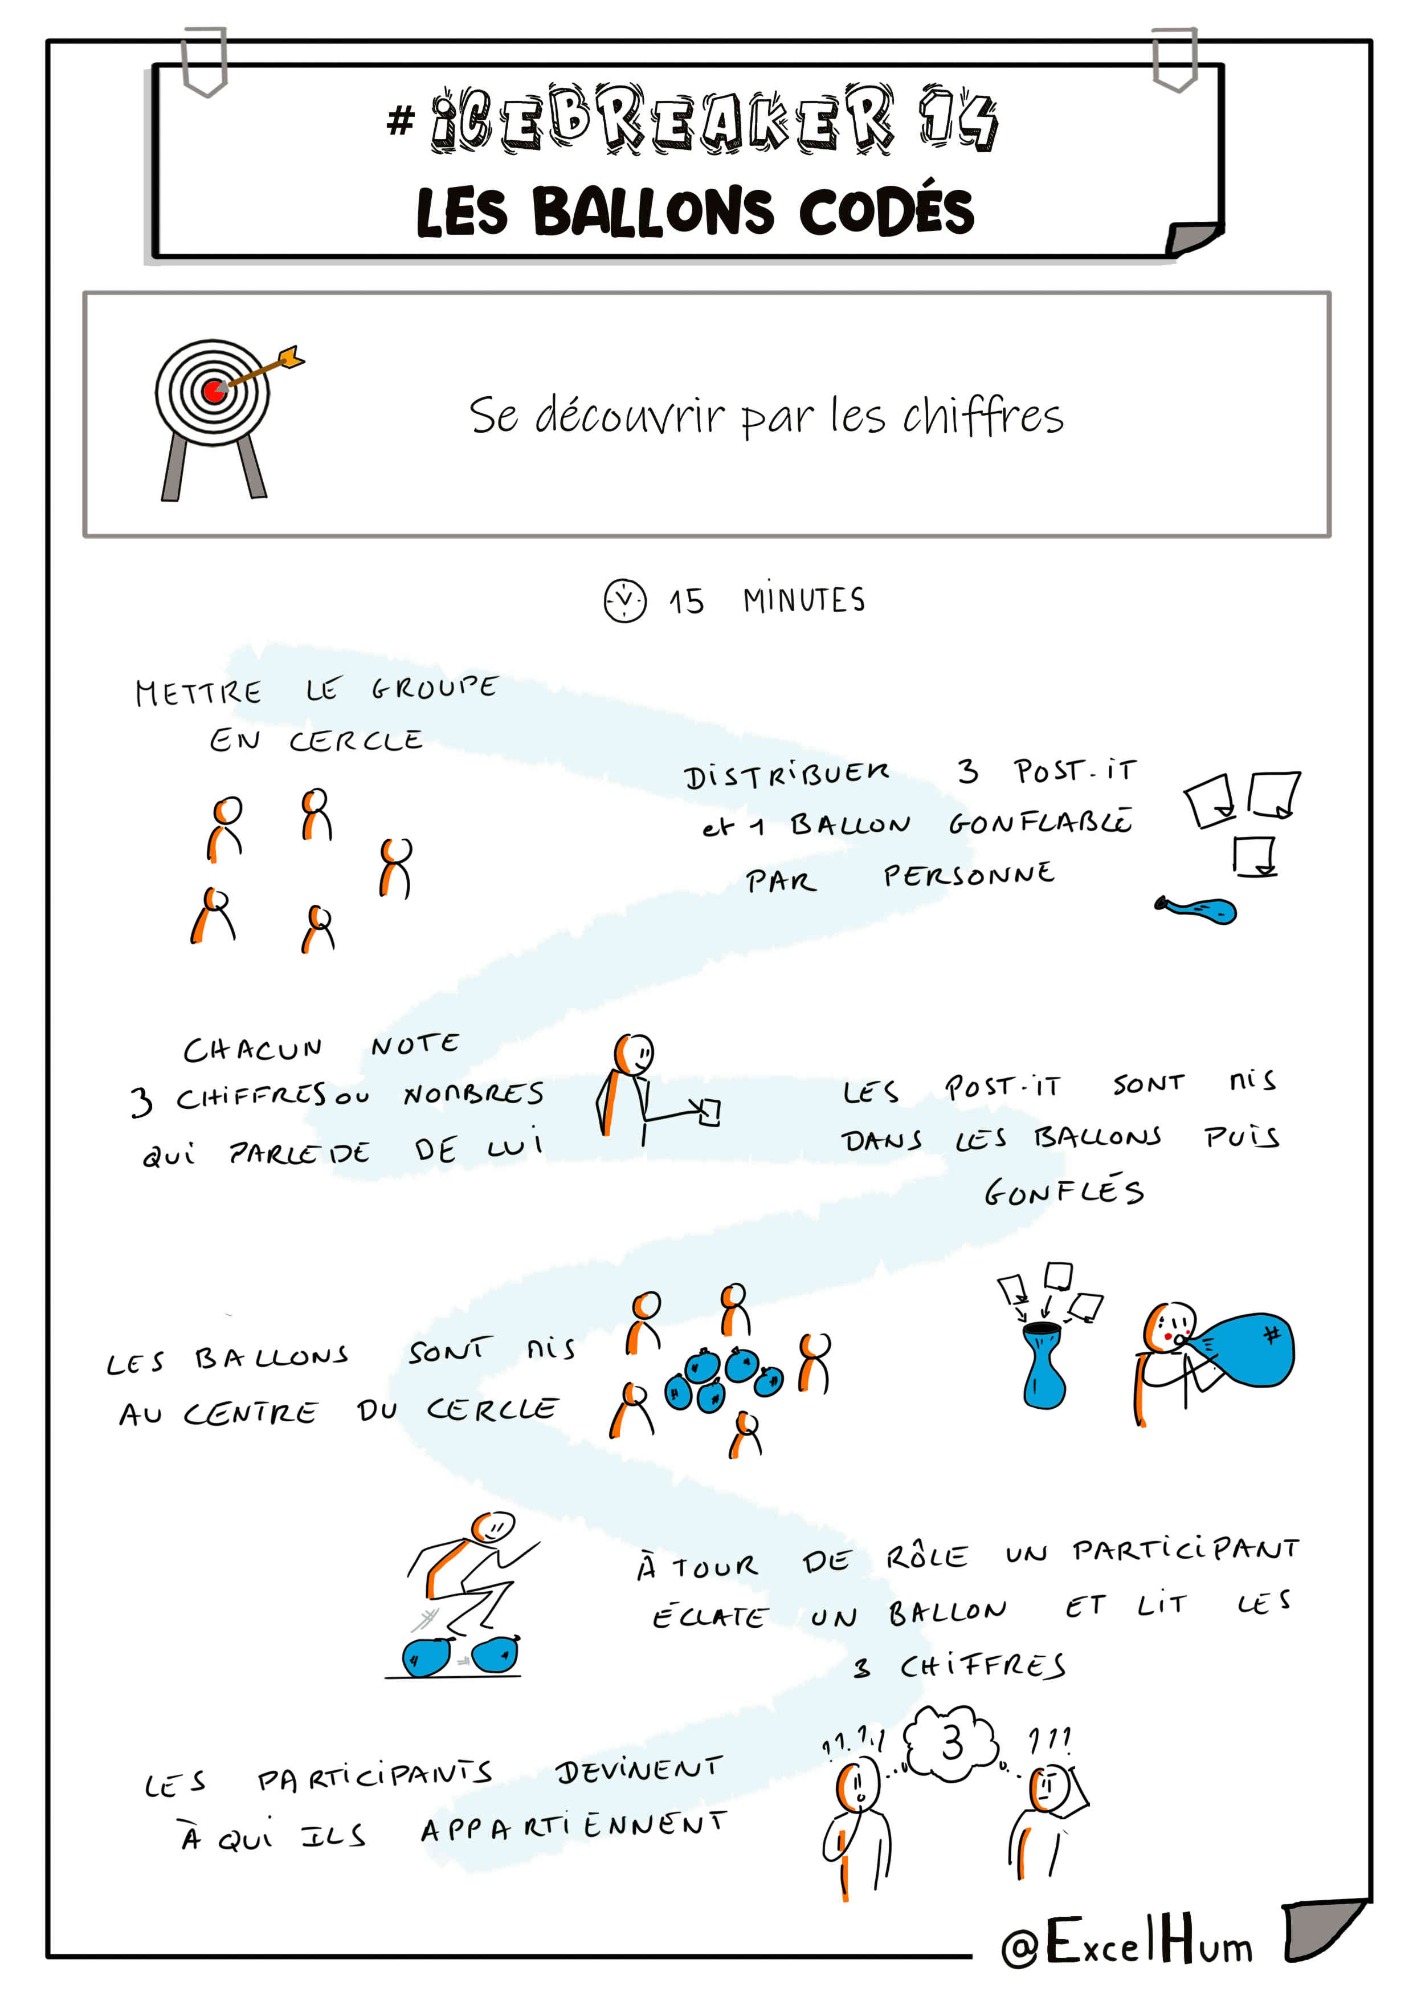 #iCEBREAKER 14
LES BALLONS CODÉS
Se découvrir par les chiffres
15 MINUTES
METTRE LE GROUPE
EN CERCLE
DISTRIBUER 3 POST-IT
et 1 BALLON GONFLABLE
PAR PERSONNE
CHACUN NOTE
3 CHIFFRES OU NOMBRES
QUI PARLE DE DE LUI
LES POST-IT SONT MIS
DANS LES BALLONS PUIS
GONFLÉS
LES BALLONS SONT MIS
AU CENTRE DU CERCLE
#
À TOUR DE RÔLE UN PARTICIPANT
ÉCLATE UN BALLON ET LIT LES
3 CHIFFRES
??.?,!
3
???
LES PARTICIPANTS DEVINENT
À QUI ILS APPARTIENNENT
@ExcelHum